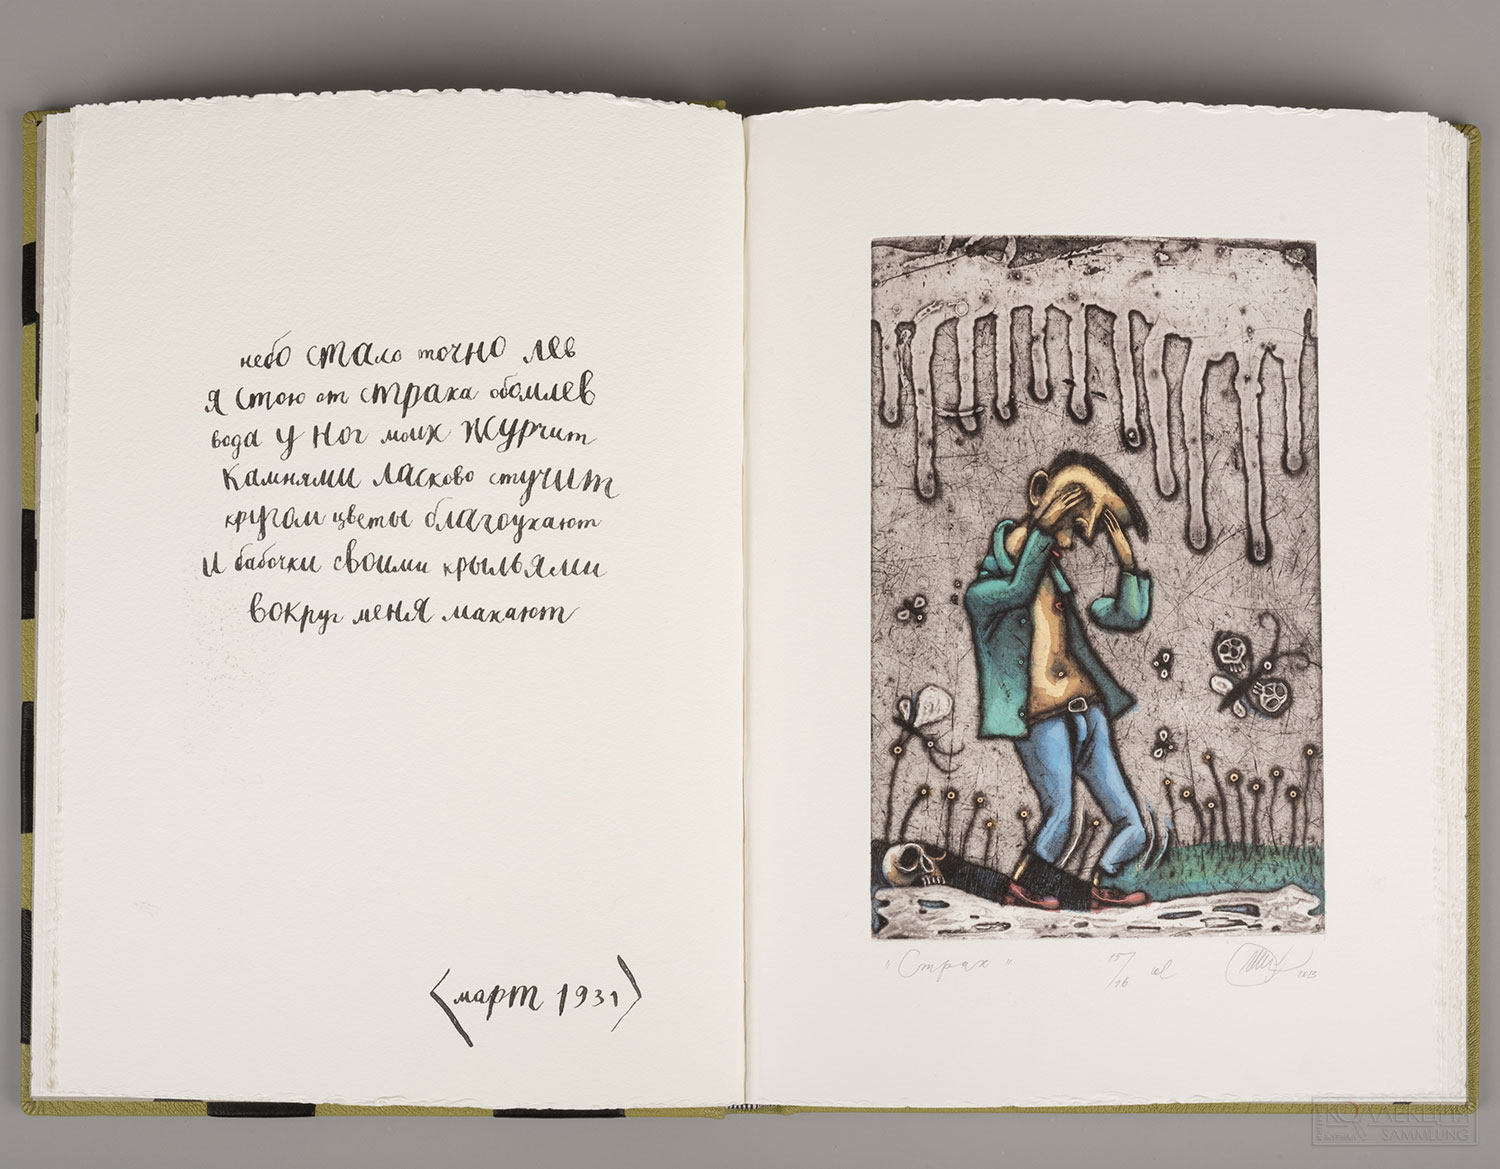 небо стало точно лев
я стою от страха обомлев
вода у ног моих журчит
камнями ласково стучит
кругом цветы благоухают
и бабочки своими крыльями
вокруг меня махают
<март 1931>
"Страх" 15/16 2013
КОЛЛЕКЦИЯ
SAMMLUNG